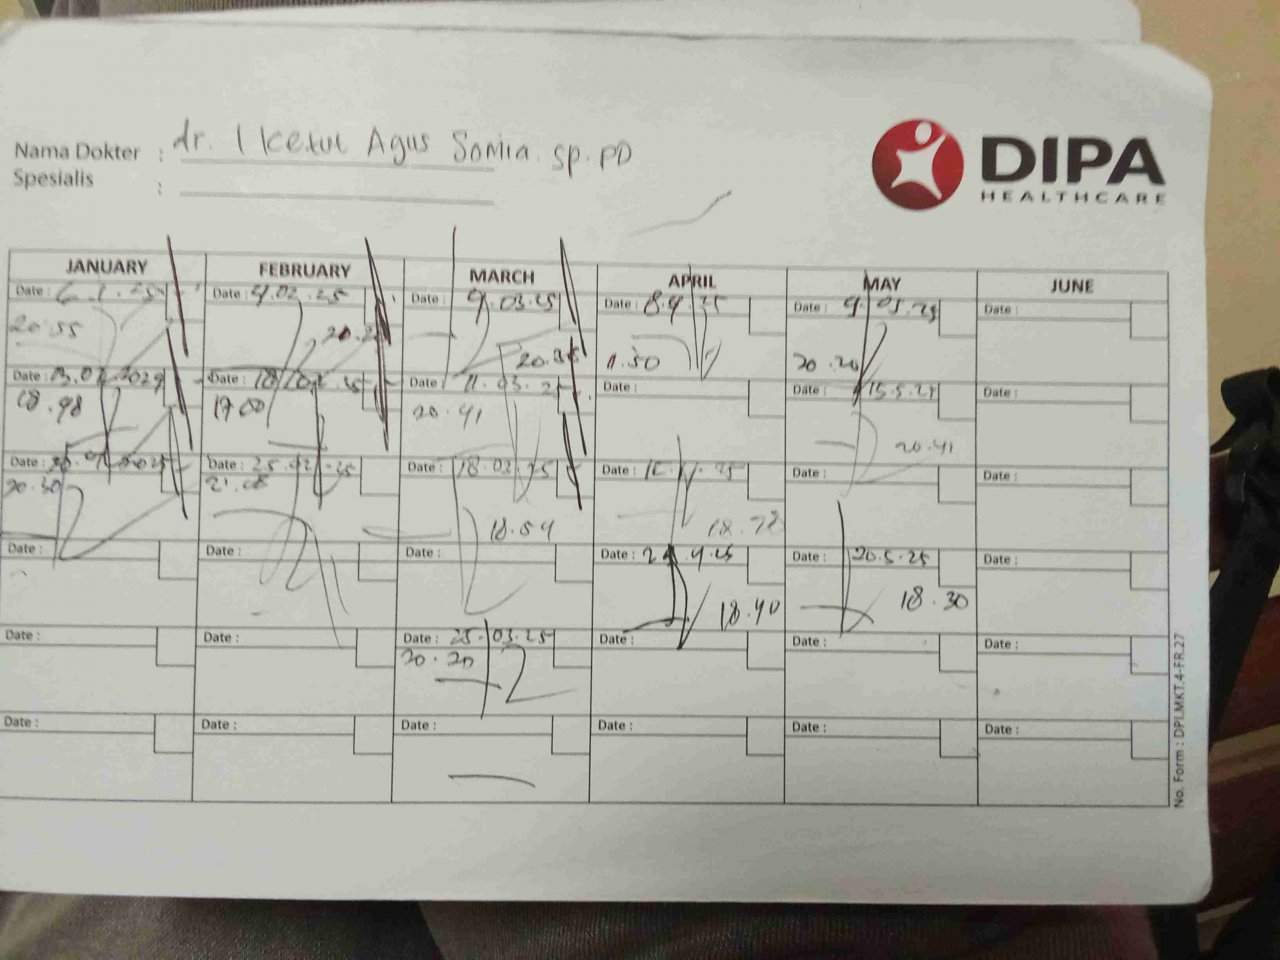 Nama Dokter : dr. I Ketut Agus Somia. Sp. PD
Spesialis :
DIPA
HEALTHCARE
JANUARY FEBRUARY MARCH APRIL MAY JUNE
Date : 6.1.25 Date : 4.02.25 Date : 4.03.25 Date : 8.4.25 Date : Date :
20.55 11.50 20.20
Date : Date : Date : 11.03.25 Date : Date : 15.5.25 Date :
18.48 17.00 20.41 20.41
Date : Date : 25.02.25 Date : 18.02.25 Date : Date : Date :
20.30 21.08 18.54
Date : Date : Date : Date : Date : 20.5.25 Date :
18.40 18.30
Date : Date : Date : 25.03.25 Date : Date : Date :
20.20
Date : Date : Date : Date : Date : Date :
No. Form : DPI.MKT.4-FR.27